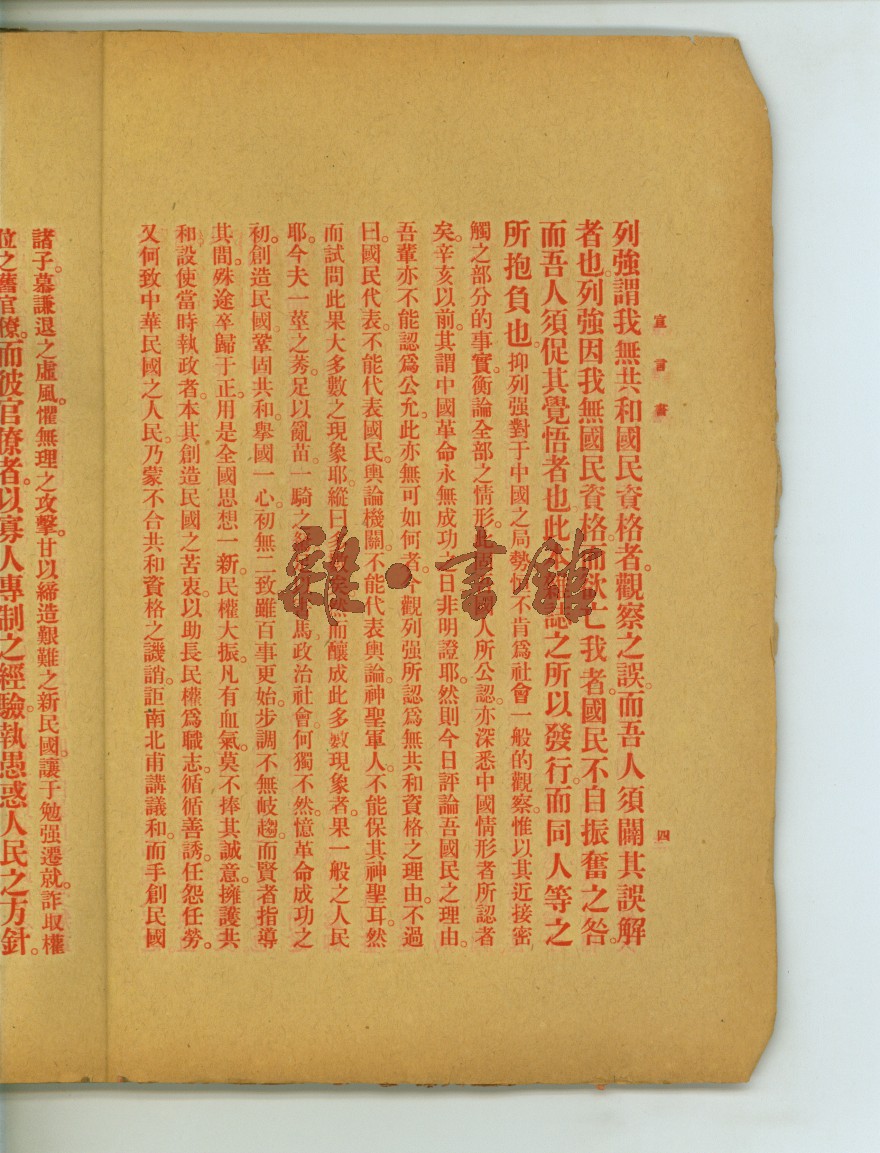 宣言書
四
列強謂我無共和國民資格者。觀察之誤。而吾人須闢其誤解
者也。列強因我無國民資格。而欲亡我者。國民不自振奮之咎。
而吾人須促其覺悟者也。此本雜誌之所以發行。而同人等之
所抱負也。抑列强對于中國之局勢。恒不肯爲社會一般的觀察。惟以其近接密
觸之部分的事實。衡論全部之情形。此固國人所公認。亦深悉中國情形者所認者
矣。辛亥以前。其謂中國革命永無成功之日。非明證耶。然則今日評論吾國民之理由。
吾輩亦不能認爲公允。此亦無可如何者。今觀列强所認爲無共和資格之理由。不過
曰。國民代表。不能代表國民。輿論機關。不能代表輿論。神聖軍人。不能保其神聖耳。然
而試問此果大多數之現象耶。縱曰多數矣。然而釀成此多數現象者。果一般之人民
耶。今夫一莖之莠。足以亂苗。一騎之 馬。政治社會。何獨不然。憶革命成功之
初。創造民國。鞏固共和。擧國一心。初無二致。雖百事更始。步調不無岐趨。而賢者指導
其間。殊途卒歸于正。用是全國思想一新。民權大振。凡有血氣。莫不捧其誠意。擁護共
和。設使當時執政者。本其創造民國之苦衷。以助長民權爲職志。循循善誘。任怨任勞。
又何致中華民國之人民。乃蒙不合共和資格之譏誚。詎南北甫講議和。而手創民國
諸子。慕謙退之虛風。懼無理之攻擊。甘以締造艱難之新民國。讓于勉强遷就。詐取權
位之舊官僚。而彼官僚者。以寡人專制之經驗。執愚惑人民之方針。
雜·書館